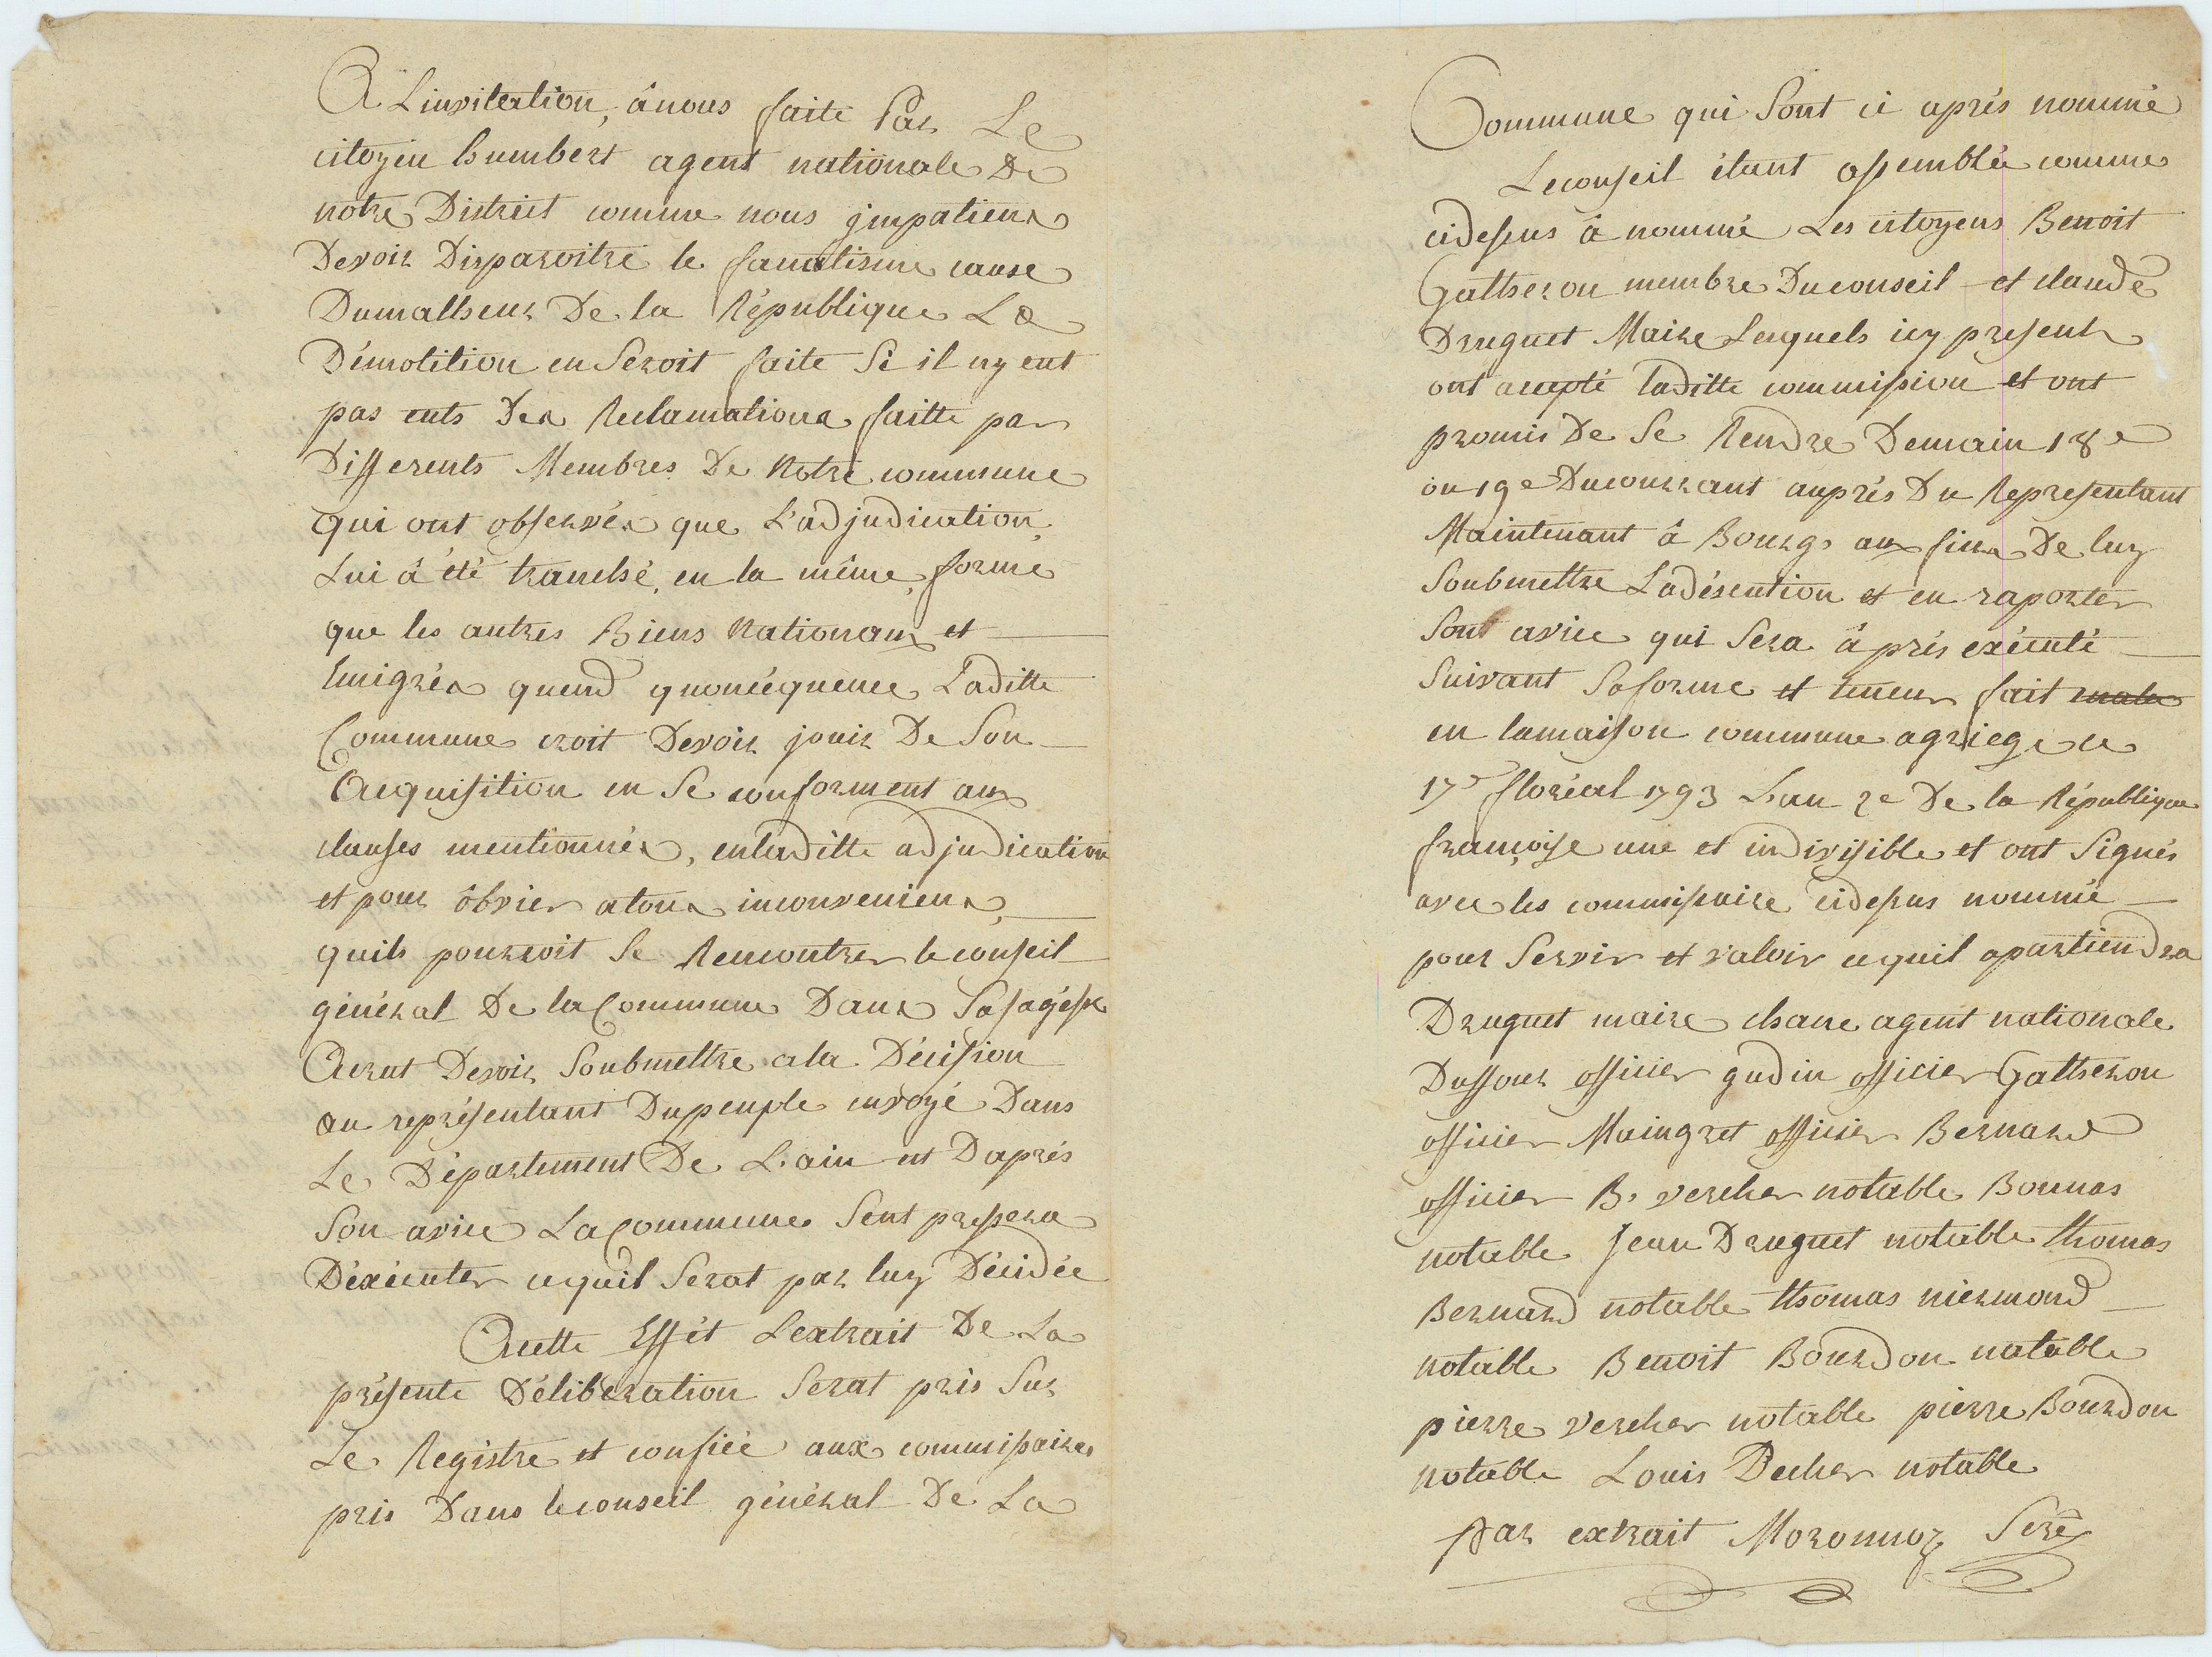 A Linvitation, ànous faite Par Le
citoyen humbert agent nationale De
notre District comme nous jmpatiens
Devoir Disparoitre le fanatisme cause
Dumalheur De la République La
Démolition en Seroit faite Si il ny eut
pas euts Des Reclamations faitte par
Differents Membres De Notre commune
qui ont observés que L'adjudication,
Lui à été tranché, en la même, forme
que les autres Biens Nationaux et
Emigrés quend quoncéquence Laditte
Commune croit Devoir jouir De Son
Acquisition en Se conforment aux
clauses mentionnés, enladitte adjudication
et pour ôbvier atous inconveniens,
quils pourroit Se Rencontrer leconseil
général De la Commune Dans Sasagesse
Acrut Devoir Soubmettre ala Décision
au représentant Dupeuple envoyé Dans
Le Département De L'ain et Daprés
Son avice La Commune Sent pressera
Déxécuter cequil Serat par luy Décidée
Acette Effét Lextrait De La
présente Déliberation Serat pris Sur
Le Régistre et confiée aux commissaires
pris Dans leconseil général De La
Commune qui Sont ci aprés nommé
Leconseil étant assemblée comme
cidessus à nommé Les citoyens Benoit
Gatheron membre Duconseil et claude
Druguet Maire Lesquels icy present
ont accepté laditte commission et ont
promis De Se Rendre Demain 18e
ou 19e Ducourrant auprés Du Representant
Maintenant à Bourg, aux fins De luy
Soubmettre Ladésention et en raporter
Sont avice qui Sera àprés exécuté
Suivant Saforme et teneur fait
en lamaison commune agriege ce
17e floréal 1793 Lan 2e De la République
françoise une et indivisible et ont Signés
avec les commissaire cidessus nommé
pour Servir et valoir cequil apartiendra
Druguet maire chane agent nationale
Duffour officier gudin officier Gatheron
officier Maingret officier Bernard
officier B, vercher notable Bonnas
notable Jean Druguet notable thomas
Bernard notable thomas niermond
notable Benoit Bourdon notable
pierre vercher notable pierre Bourdon
notable Louis Becher notable
par extrait Moronnoz Seré